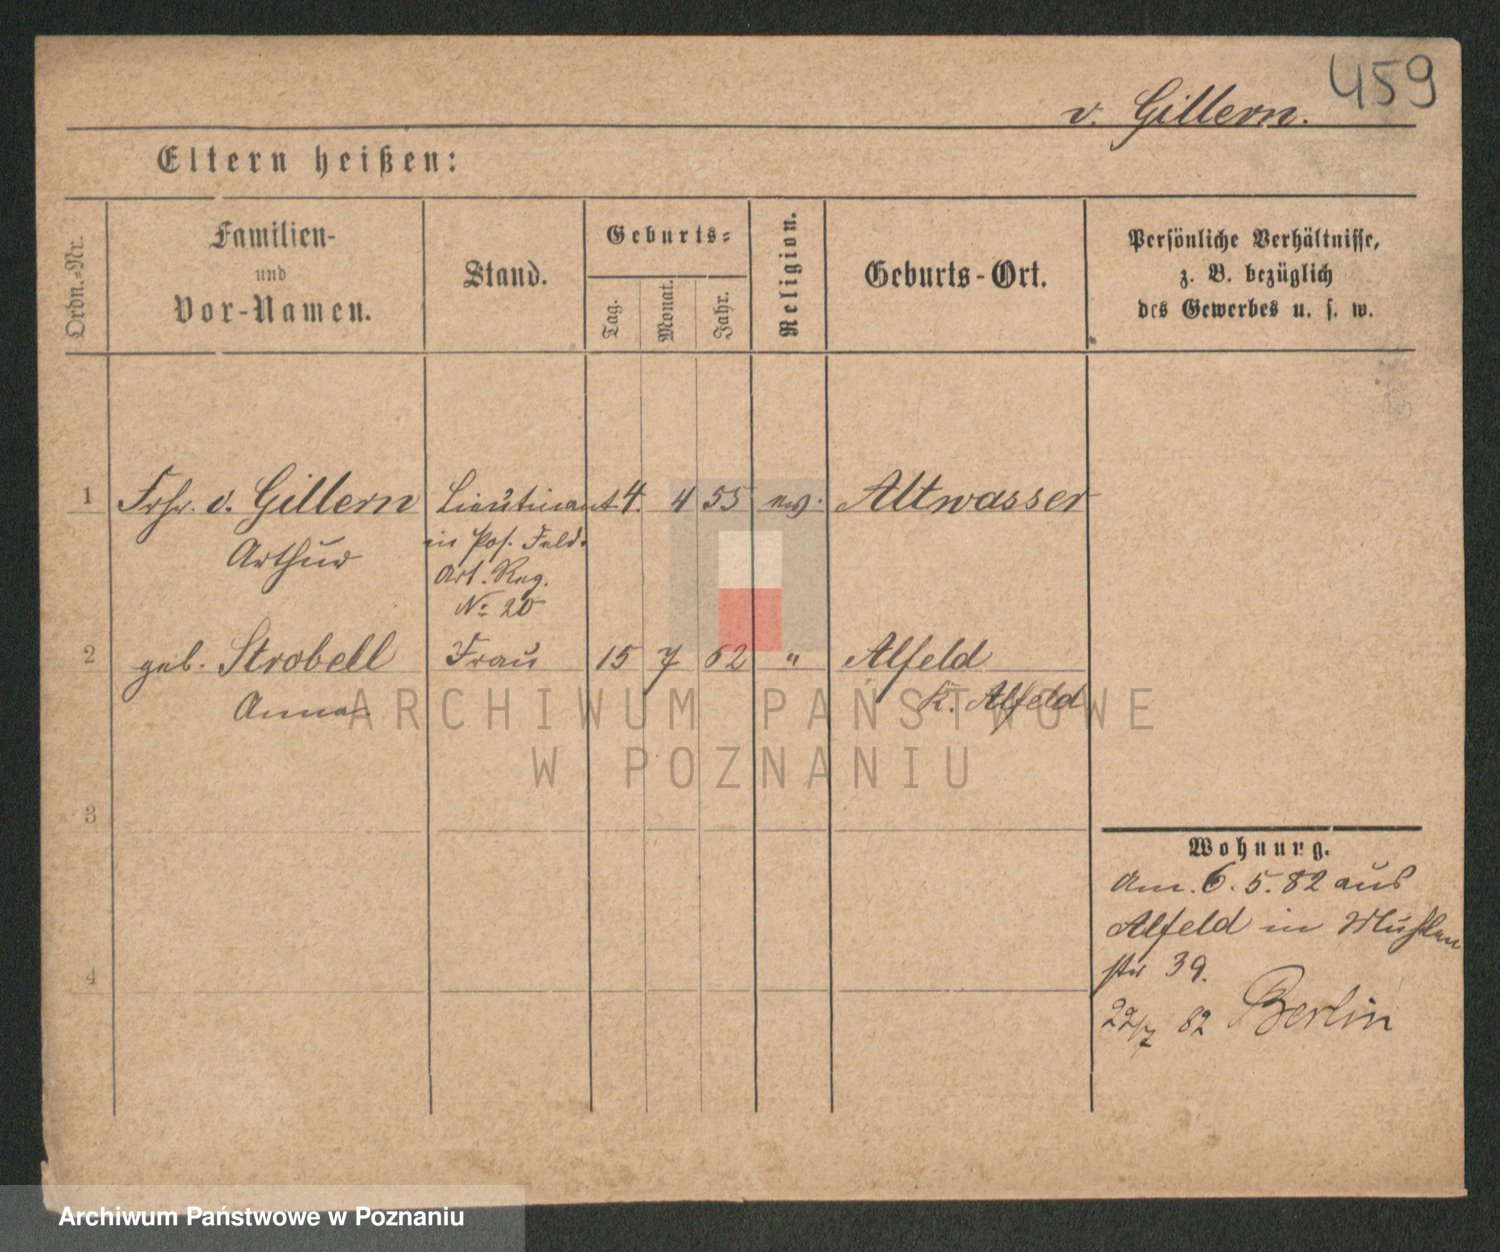 459
v. Gillern.
Eltern heißen:
Ordn.-Nr.
Familien-
und
Vor-Namen.
Stand.
Geburts-
Tag.
Monat.
Jahr.
Religion.
Geburts-Ort.
Persönliche Verhältnisse,
z. B. bezüglich
des Gewerbes u. s. w.
1 Frhr. v. Gillern Lieutinant 4. 4 55 ev. Altwasser
Arthur
in Pos. Feld.
Art. Reg.
No 20
2 geb. Strobell Frau 15 7 62 " Alfeld
Anna
K. Alfeld
3
4
Wohnung.
Am. 6. 5. 82 aus
Alfeld in Muhlen
str 39.
22/7 82 Berlin
ARCHIWUM PAŃSTWOWE
W POZNANIU
Archiwum Państwowe w Poznaniu